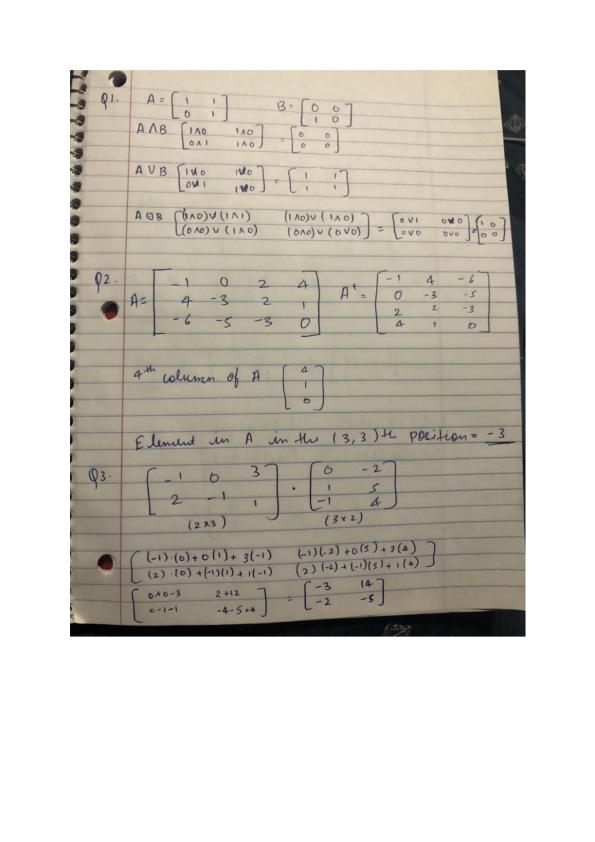 Q1. A = [ 1 1 B = [ 0 0
0 1 ] 1 0 ]
A∧B [ 1∧0 1∧0 = [ 0 0
0∧1 1∧0 ] 0 0 ]
A∪B [ 1∨0 1∨0 = [ 1 1
0∨1 1∨0 ] 1 1 ]
A⊙B [ (1∧0)∨(1∧1) (1∧0)∨(1∧0) = [ 0∨1 0∨0 = [ 1 0
(0∧0)∨(1∧0) (0∧0)∨(0∨0) ] 0∨0 0∨0 ] 0 0 ]
Q2. A = [ -1 0 2 4 Aᵗ = [ -1 4 -6
4 -3 2 1 0 -3 -5
-6 -5 -3 0 ] 2 2 -3
4 1 0 ]
4th column of A: [ 4
1
0 ]
Element in A in the (3,3)th position = -3
Q3. [ -1 0 3 . [ 0 -2
2 -1 1 ] 1 5
-1 4 ]
(2x3) (3x2)
[ (-1)·(0)+0(1)+3(-1) (-1)(-2)+0(5)+3(4)
(2)·(0)+(-1)(1)+1(-1) (2)(-2)+(-1)(5)+1(4) ]
[ 0+0-3 2+12 = [ -3 14
0-1-1 -4-5+4 ] -2 -5 ]